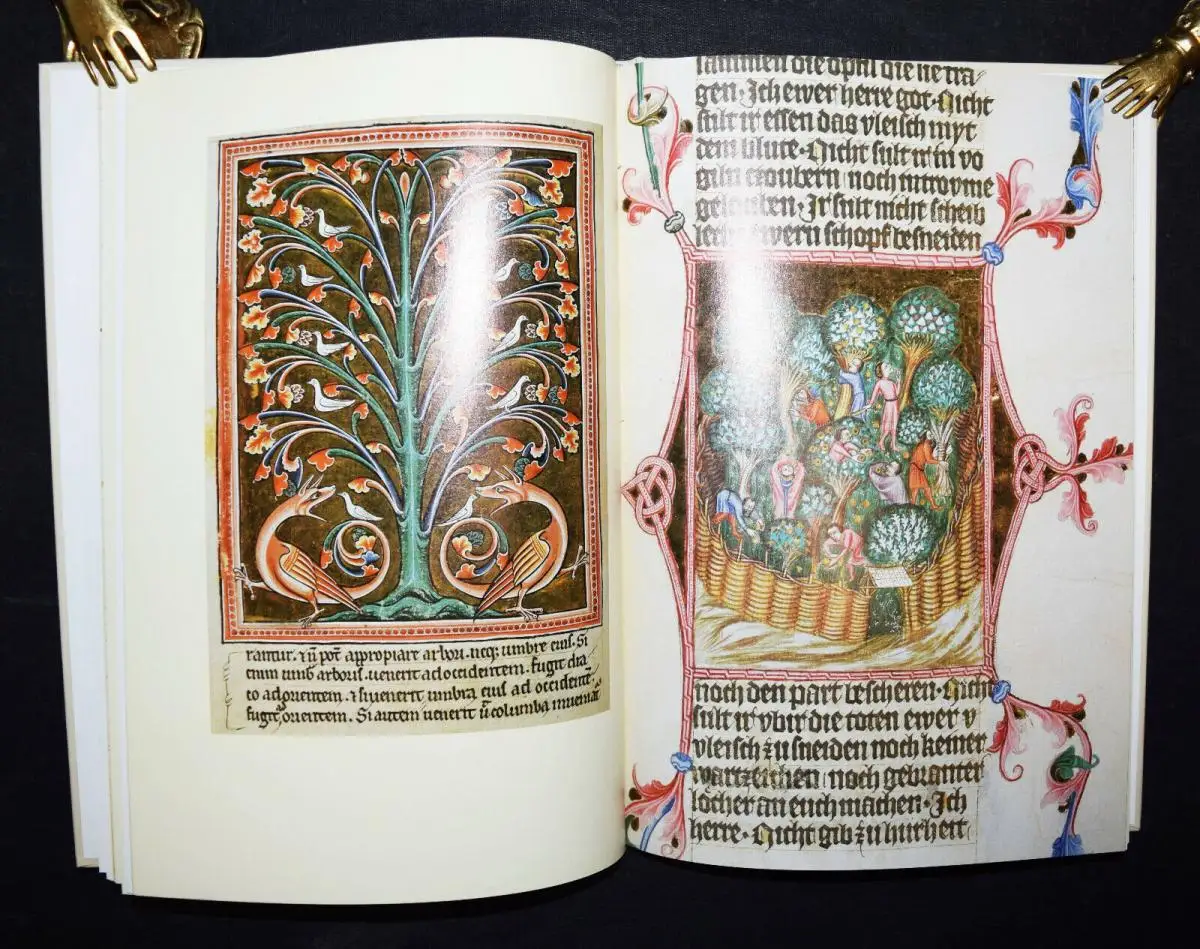 rantur. & ñ pot̄ appropiare arbori. neq; umbre eius. Si
enim umb arboris. uenerit ad occidentem. fugit dra
co ad orientem. & si uenerit umbra eius ad occidentē.
fugit orientem. Si autem uenerit columba inueniat
sammen die opfil die tra/
gen. Ich ewer herre got. Nicht
sult ir essen das vleisch myt
dem blute. Nicht sult ir in vo
giln czoubern noch in troyme
gelouben. Ir sult nicht scheib
lecht ewern schopf besneiden
noch den part bescheren. Nicht
sult ir vbir die toten ewer v
vleisch zu sneiden noch keiner
wartzeichen. noch gebranter
locher an euch machen. Ich
herre. Nicht gib zu hurheit